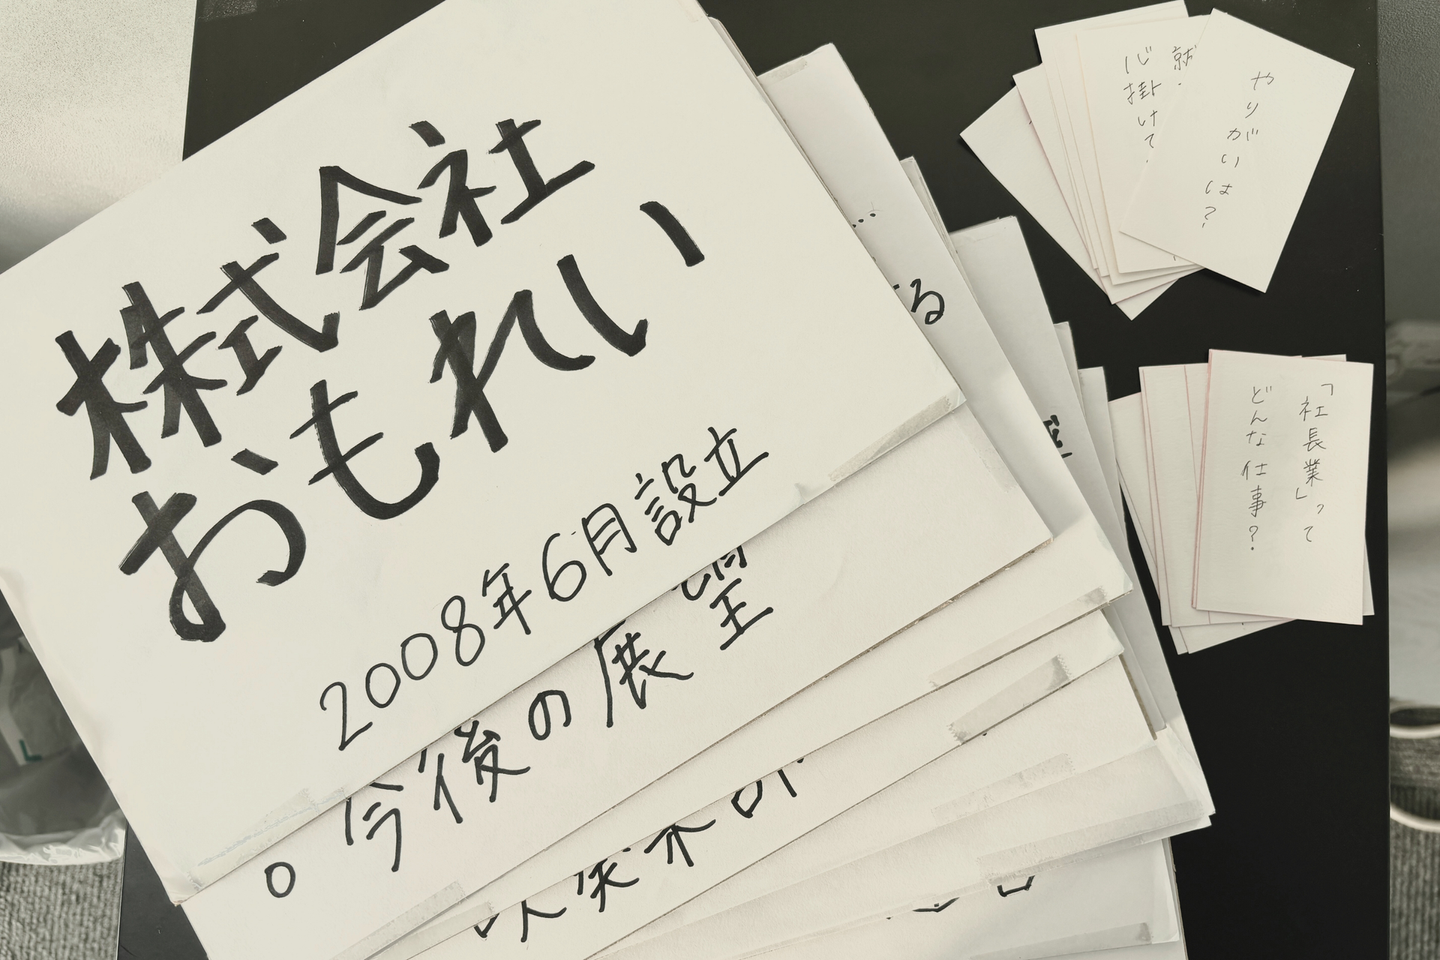 株式会社
おもれい
2008年6月設立
今後の展望
る
就・
心掛けて・
やりがいは?
「社長業」って
どんな仕事?